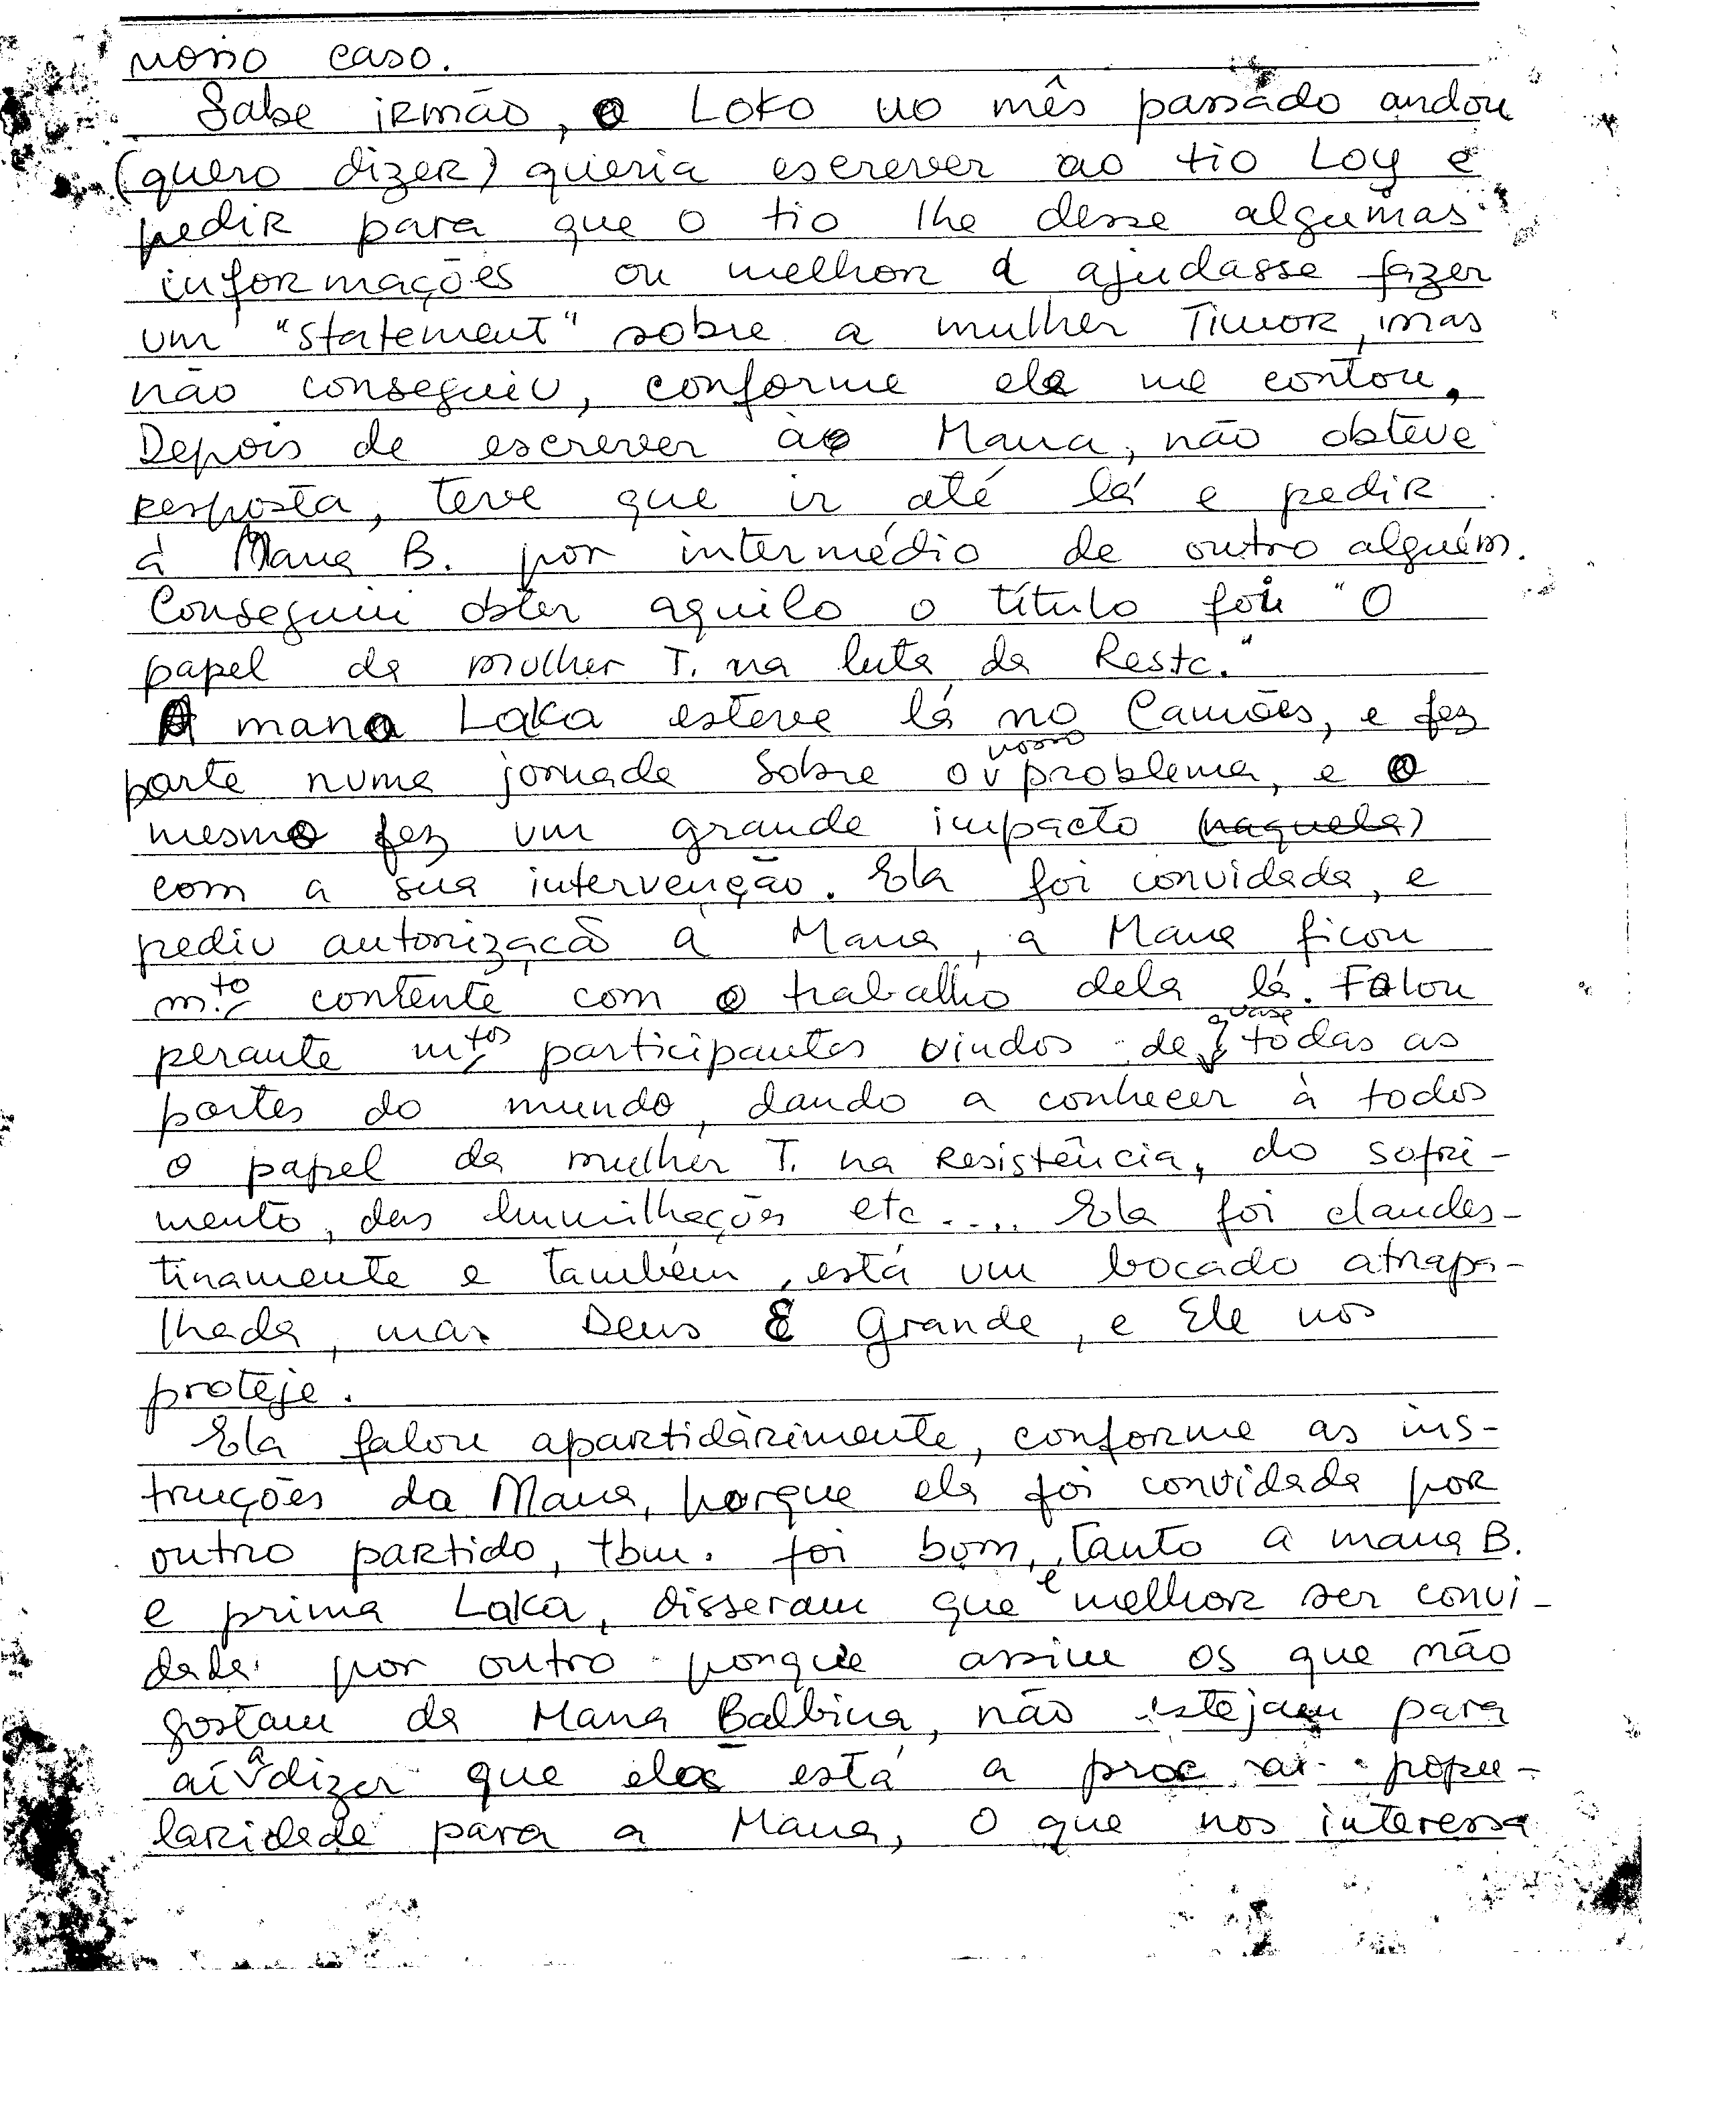 nosso caso.
Sabe irmão, o Loko no mês passado andou
(quero dizer) queria escrever ao tio Loy e
pedir para que o tio lhe desse algumas
informações ou melhor a ajudasse fazer
um "statement" sobre a mulher Timor, mas
não conseguiu, conforme ele me contou.
Depois de escrever ao Mana, não obteve
resposta, teve que ir até lá e pedir
à Mana B. por intermédio de outro alguém.
Conseguiu obter aquilo o título foi "O
papel da mulher T. na luta da Restc."
A mana Laka esteve lá no Camões, e fez
parte numa jornada sobre o nosso problema, e o
mesmo fez um grande impacto (naquela)
com a sua intervenção. Ela foi convidada, e
pediu autorizacão à Mana, a Mana ficou
m.to contente com o trabalho dela lá. Falou
perante mtos participantes vindos de quase todas as
partes do mundo, dando a conhecer à todos
o papel da mulher T. na Resistência, do sofri-
mento, das humilhações etc.... Ela foi clandes-
tinamente e também, está um bocado atrapa-
lhada, mas Deus É Grande, e Ele nos
proteje.
Ela falou apartidàrimente, conforme as ins-
truções da Mana, porque ela foi convidada por
outro partido, tbm. foi bom, Tanto a mana B.
e prima Laka, disseram que é melhor ser convi-
dada por outro porque assim os que não
gostam da Mana Balbina, não estejam para
aí a dizer que está a popu-
laridade para a Mana, O que nos interessa